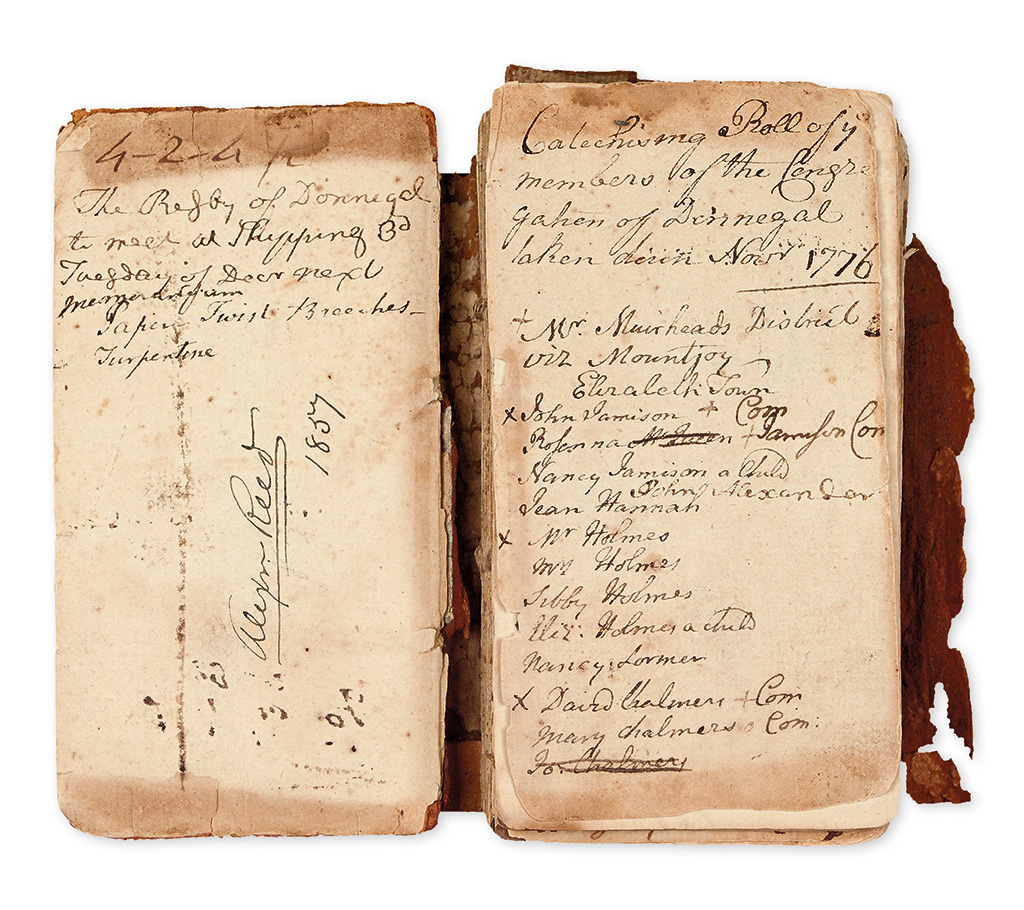 4-2-4
The Resby of Donnegal
to meet at Shipping 3d
Tuesday of Decr next
memorandum
Paper Twist Breeches
Turpentine
Alexr. Reed
1857
Catechising Roll of y
members of the Congre
gation of Donnegal
taken down Novr 1776
+ Mr. Muirheads District
viz Mountjoy
Elizabeth Town
x John Jamison + Com
Rosenna McQueen + Jamison Com
Nancy Jamison a Child
John Alexander
Jean Hannah
x Mr Holmes
Mrs Holmes
Sibby Holmes
Eliz: Holmes a child
Nancy Lormer
x David Chalmers + Com
Mary Chalmers o Com:
Jo: Chalmers